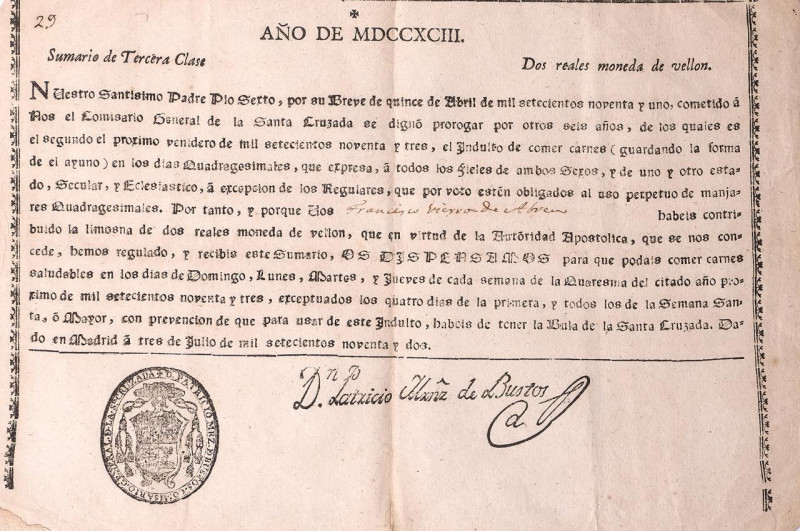 29
AÑO DE MDCCXCIII.
Sumario de Tercera Clase
Dos reales moneda de vellon.
NUestro Santisimo Padre Pio Sexto, por su Breve de quince de Abril de mil setecientos noventa y uno, cometido â
Nos el Comisario General de la Santa Cruzada se dignó prorogar por otros seis años, de los quales es
el segundo el proximo venidero de mil setecientos noventa y tres, el Indulto de comer carnes (guardando la forma
de el ayuno) en los dias Quadragesimales, que expresa, â todos los Fieles de ambos Sexos, y de uno y otro esta-
do, Secular, y Eclesiastico, â excepcion de los Regulares, que por voto estén obligados al uso perpetuo de manja-
res Quadragesimales. Por tanto, y porque Vos Francisco Vierra de Abreu habeis contri-
buido la limosna de dos reales moneda de vellon, que en virtud de la Autòridad Apostolica, que se nos con-
cede, hemos regulado, y recibis este Sumario, OS DISPENSAMOS para que podais comer carnes
saludables en los dias de Domingo, Lunes, Martes, y Jueves de cada semana de la Quaresma del citado año pro-
ximo de mil setecientos noventa y tres, exceptuados los quatro dias de la primera, y todos los de la Semana San-
ta, ô Mayor, con prevencion de que para usar de este Indulto, habeis de tener la Bula de la Santa Cruzada. Da-
do en Madrid â tres de Julio de mil setecientos noventa y dos.
D.n P.o
D. Patricio Mrñz de Bustos
D. PATRICIO MRZ. D BUSTOS COMISARIO GENERAL D LA STA CRUZADA